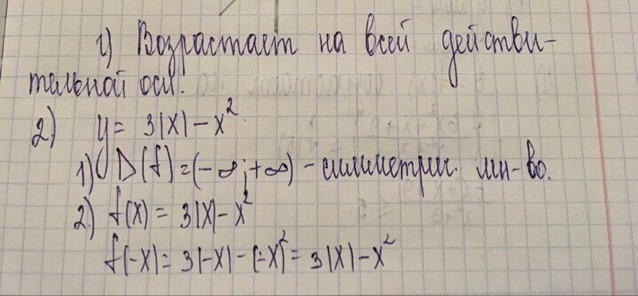 г) Возрастает на всей действи-
тельной оси.
2) y = 3|x| - x²
1) D(f) = (-∞; +∞) - симметрич. мн-во.
2) f(x) = 3|x| - x²
f(-x) = 3|-x| - (-x)² = 3|x| - x²